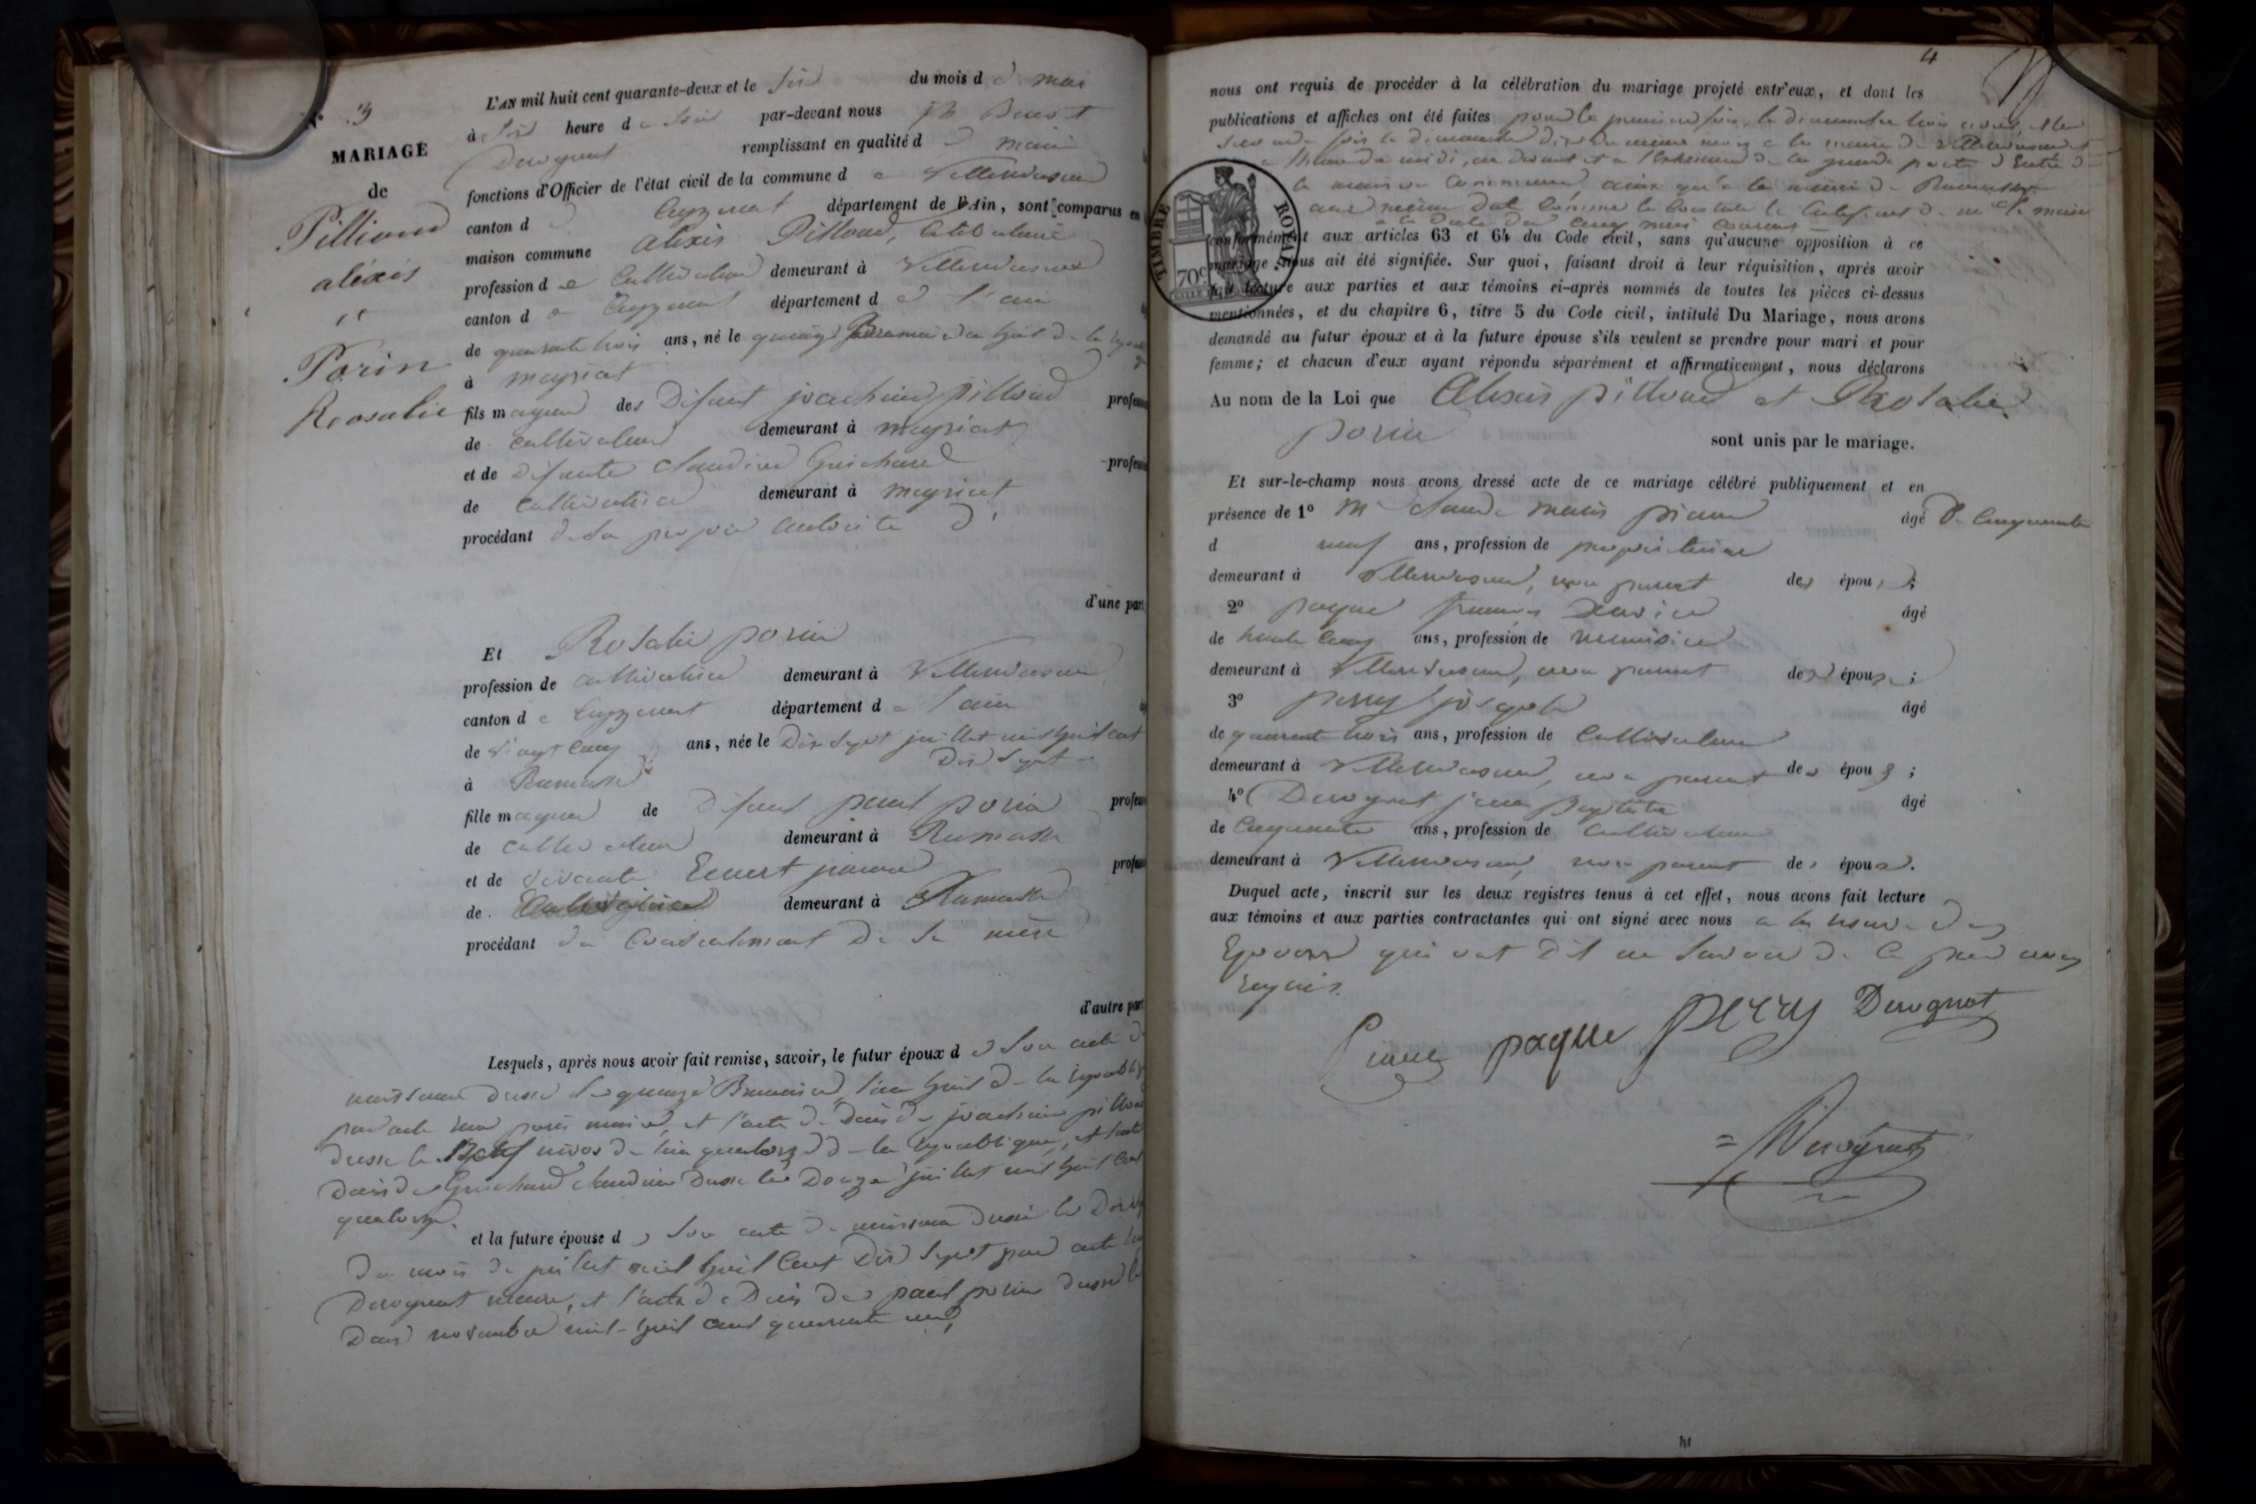 N.° 3
MARIAGE
de
Pilliond
alexis
Porin
Rosalie
L'AN mil huit cent quarante-deux et le six du mois d e mai
à six heure d u soir par-devant nous
Derognat remplissant en qualité d e maire
fonctions d'Officier de l'état civil de la commune d e Villereversure
canton d e Ceyzeriat département de l'Ain, sont comparus en
maison commune alexis Pilloud, Célibataire
profession d e Cultivateur demeurant à Villereversure
canton d e Ceyzeriat département d e l'ain
de quarante trois ans, né le quinze Brumaire an huit de la
à meyriat
fils majeur des Defunt joachim pilloud profession
de cultivateur demeurant à meyriat
et de defunte Claudine Guichard profession
de Cultivatrice demeurant à meyriat
procédant de sa propre autorité d'
d'une part
Et Rosalie porin
profession de cultivatrice demeurant à Villereversure
canton d e Ceyzeriat département d e l'ain
de vingt cinq ans, née le Dix Sept juillet mil huit cent
Dix Sept
à Ramasse
fille majeure de Defunt paul porin profession
de cultivateur demeurant à Ramasse
et de vivante profession
de . Cultivatrice demeurant à Ramasse
procédant du Consentement De Sa mère
d'autre part
Lesquels, après nous avoir fait remise, savoir, le futur époux d e Son acte de
naissance dressé le quinze Brumaire l'an huit de la république
et l'acte de Décès de joachim pilloud
dressé le nivos de l'an quatorze de la république, et l'acte
décès de Guichard Claudine Dressé le Douze juillet mil huit Cent
quatorze.
et la future épouse d e Son acte de naissance Dressé le Dix Sept
du mois de juillet mil huit Cent Dix Sept par acte
Derognat maire, et l'acte de Décès de paul porin dressé le
novembre mil huit cent quarante un,
4
nous ont requis de procéder à la célébration du mariage projeté entr'eux, et dont les
publications et affiches ont été faites pour la première fois, le dimanche
fois le dimanche du même mois a la mairie de Villereversure
a l'heure de midi, au devant et a l'extérieur de la grande porte d'Entrée de
la maison Commune ainsi qu'a la mairie de Ramasse
aux même Date Comme le Constate le Certificat de mr le maire
a la Date du Cinq mai Courant
conformément aux articles 63 et 64 du Code civil, sans qu'aucune opposition à ce
mariage nous ait été signifiée. Sur quoi, faisant droit à leur réquisition, après avoir
fait lecture aux parties et aux témoins ci-après nommés de toutes les pièces ci-dessus
mentionnées, et du chapitre 6, titre 5 du Code civil, intitulé Du Mariage, nous avons
demandé au futur époux et à la future épouse s'ils veulent se prendre pour mari et pour
femme; et chacun d'eux ayant répondu séparément et affirmativement, nous déclarons
Au nom de la Loi que Alexis pilloud et Rosalie
porin sont unis par le mariage.
TIMBRE ROYAL
70 c
Et sur-le-champ nous avons dressé acte de ce mariage célébré publiquement et en
présence de 1° Mr Claude Marie âgé De Cinquante
d neuf ans, profession de propriétaire
demeurant à Villereversure, non parent des époux;
2° paque françois Xavier âgé
de trente Cinq ans, profession de menuisier
demeurant à Villereversure, non parent des époux;
3° perry joseph âgé
de quarante trois ans, profession de Cultivateur
demeurant à Villereversure, non parent des époux;
4° Derognat jean Baptiste âgé
de Cinquante ans, profession de cultivateur
demeurant à Villereversure, non parent des époux.
Duquel acte, inscrit sur les deux registres tenus à cet effet, nous avons fait lecture
aux témoins et aux parties contractantes qui ont signé avec nous a la réserve des
Epoux qui ont dit ne Savoir de Ce
requis.
paque perry Derognat
Derognat